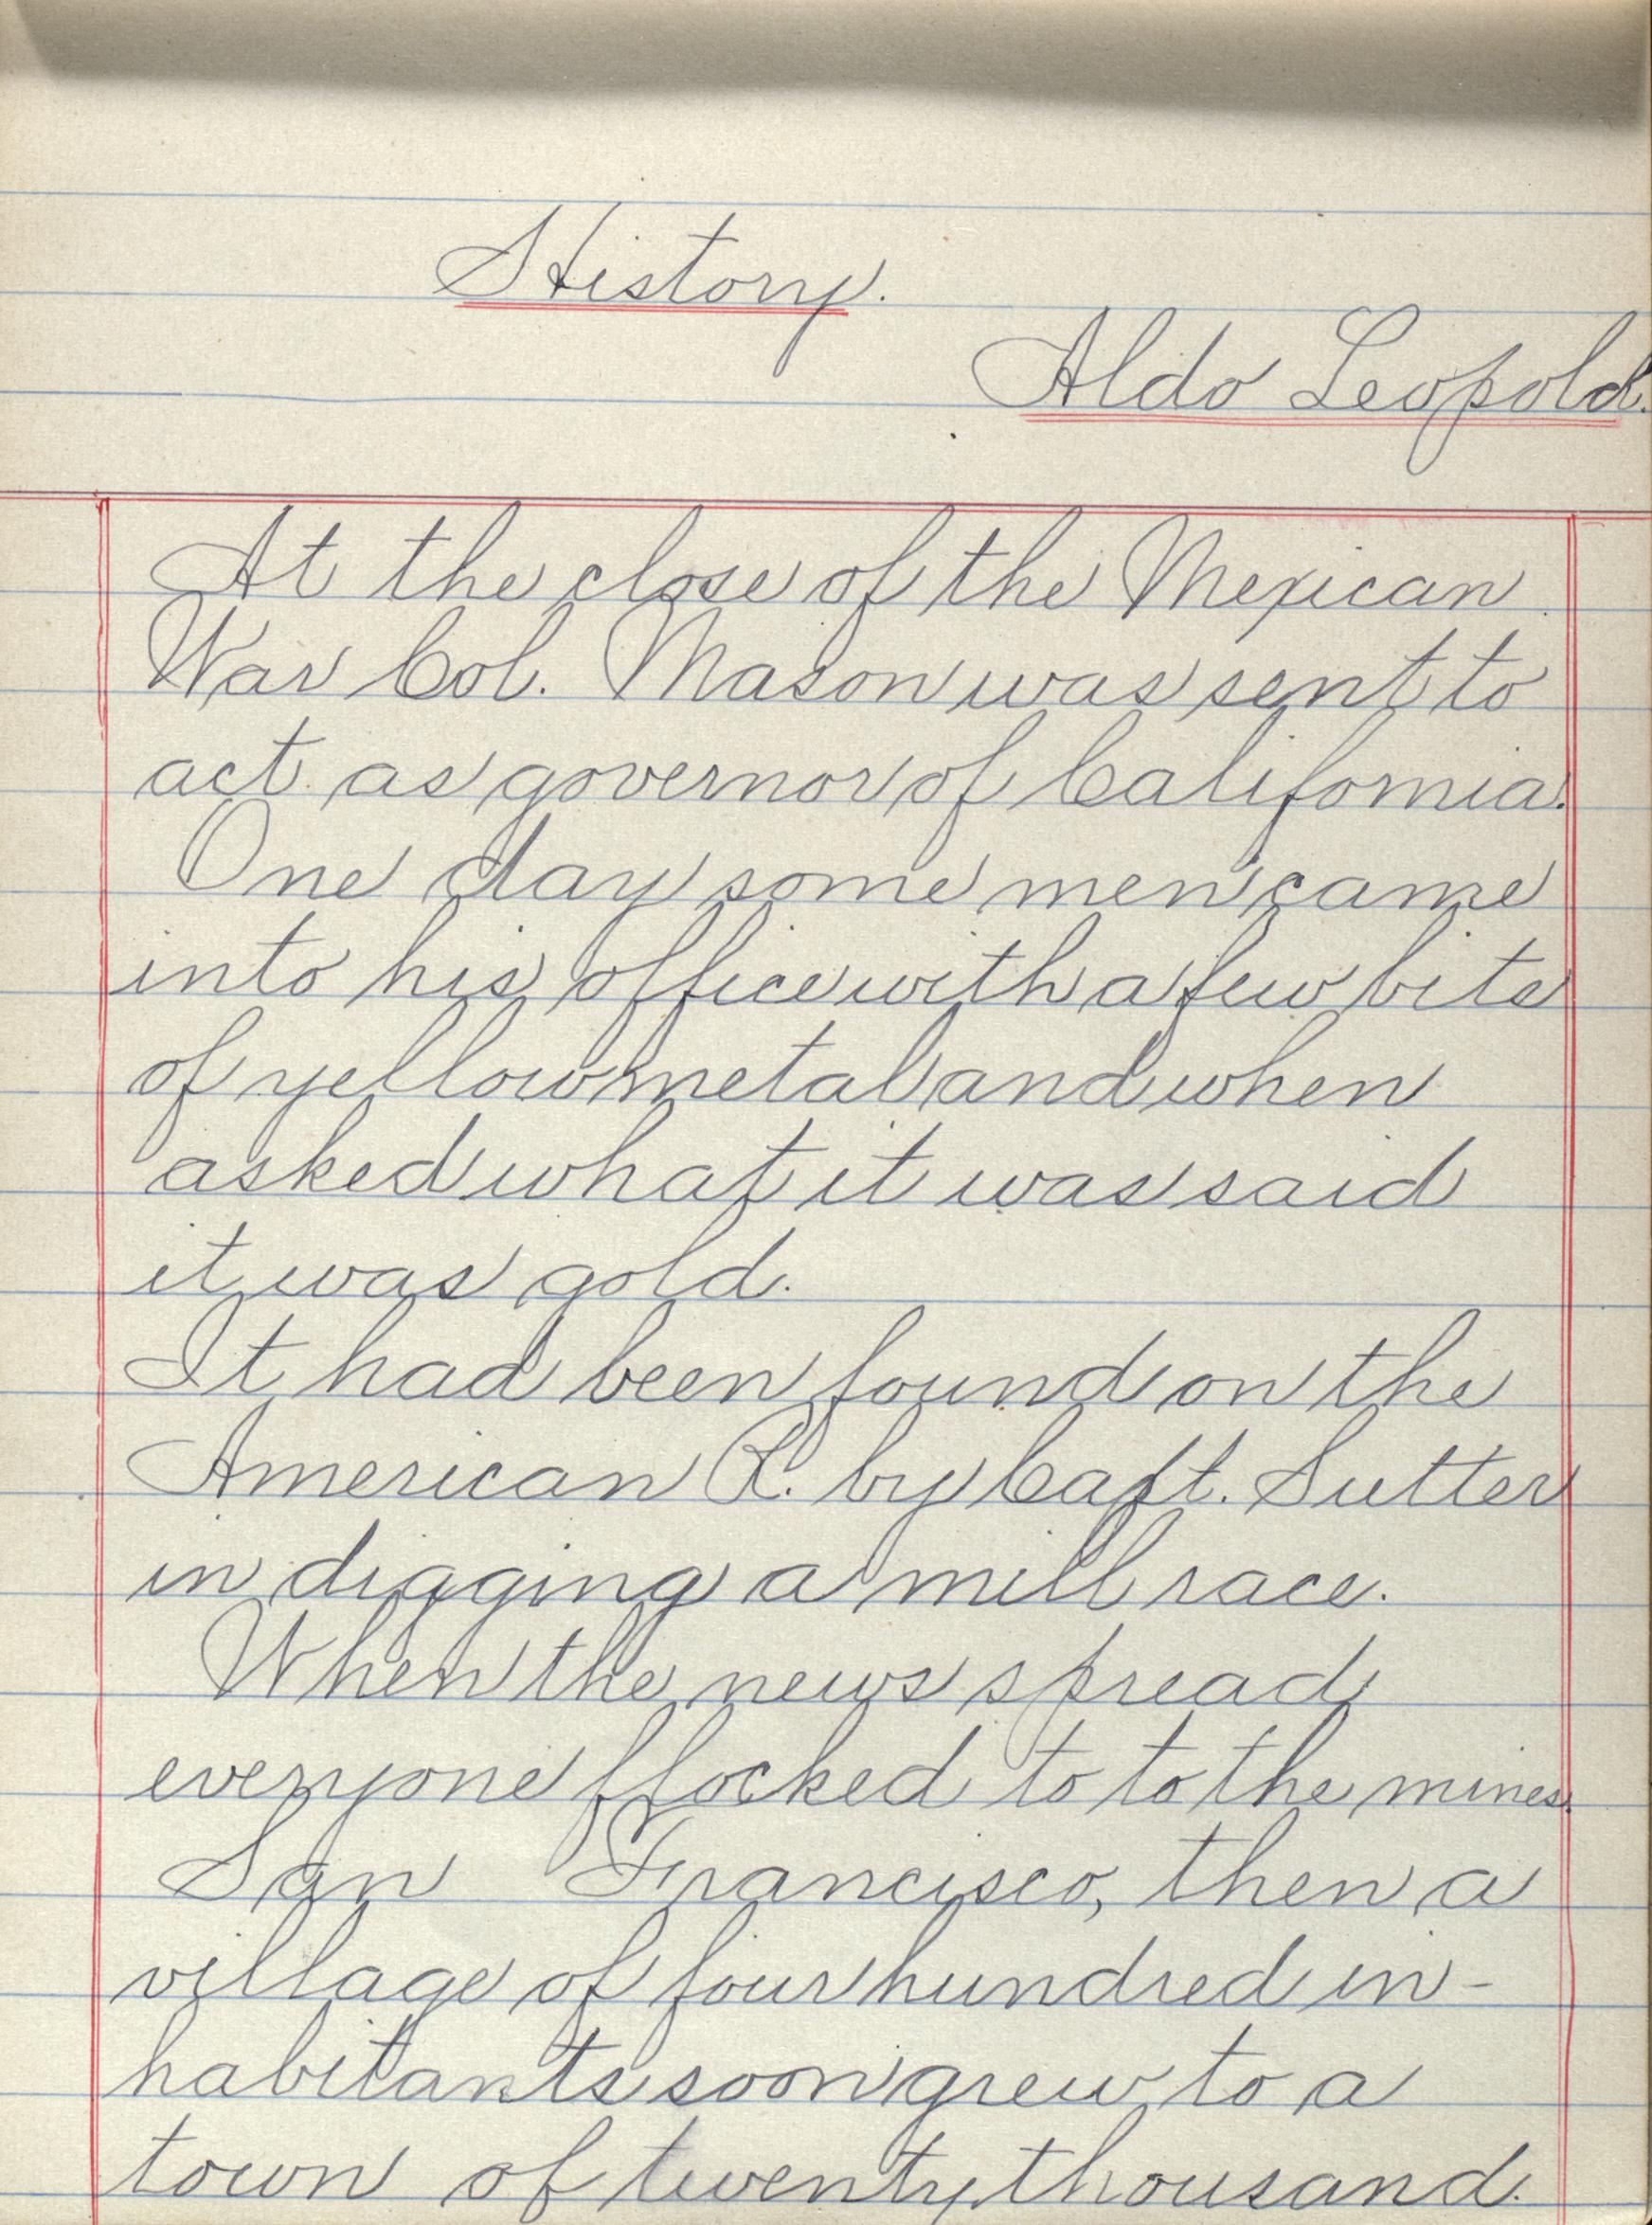 History.
Aldo Leopold.
At the close of the Mexican
War Col. Mason was sent to
act as governor of California.
One day some men came
into his office with a few bits
of yellow metal and when
asked what it was said
it was gold.
It had been found on the
American R. by Capt. Sutter
in digging a mill race.
When the news spread
everyone flocked to to the mines.
San Francisco, then a
village of four hundred in-
habitants soon grew to a
town of twenty thousand.